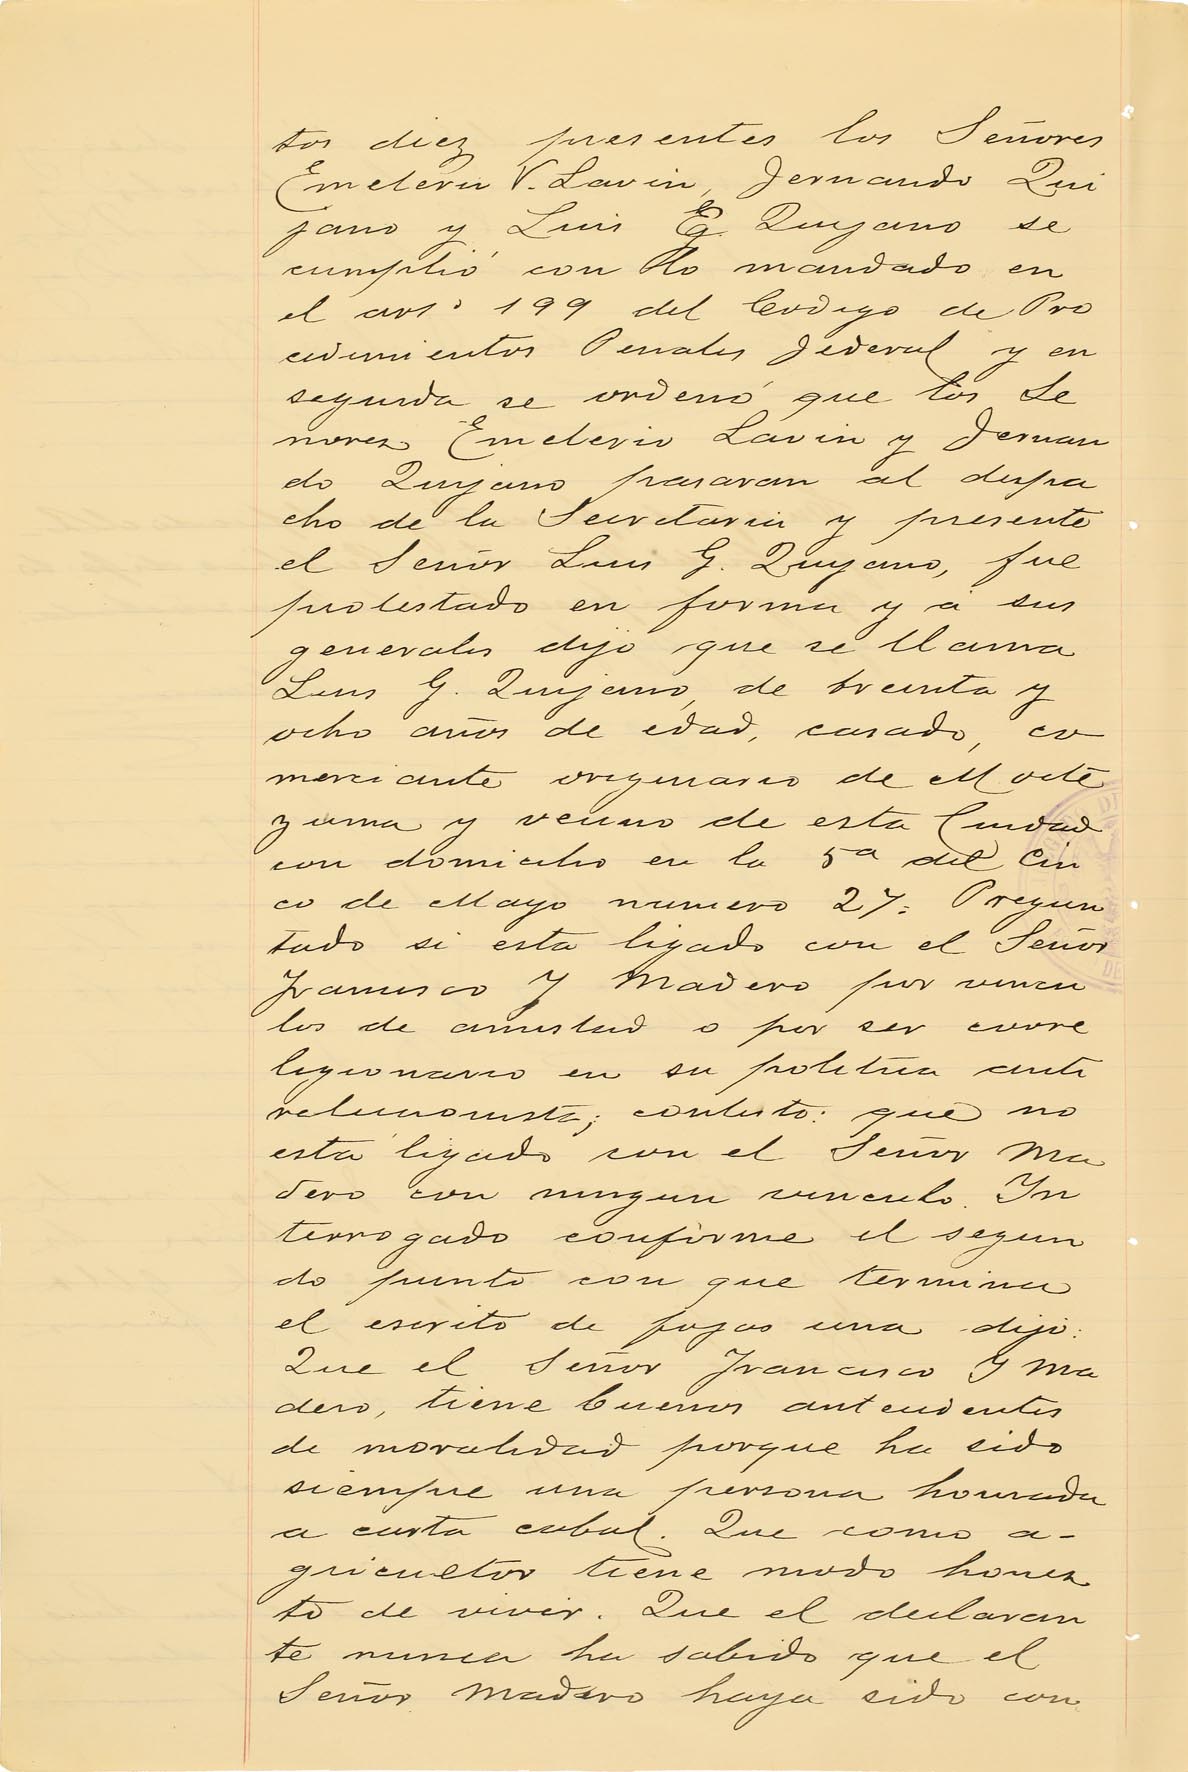 tos diez presentes los Señores
Emeterio V. Lavin, Fernando Qui
jano y Luis G. Quijano se
cumplió con lo mandado en
el art.º 199 del Codigo de Pro
cedimientos Penales Federal y en
seguida se ordenó que los Se
nores Emeterio Lavin y Fernan
do Quijano pasaran al despa
cho de la Secretaria y presente
el Señor Luis G. Quijano, fue
protestado en forma y á sus
generales dijo que se llama
Luis G. Quijano, de treinta y
ocho años de edad, casado, co
merciante originario de Mocte
zuma y vecino de esta Ciudad
con domicilio en la 5ª del Cin
co de Mayo numero 27. Pregun
tado si esta ligado con el Señor
Francisco Y Madero por vincu
los de amistad o por ser corre
ligionario en su politica anti
releccionista; contestó: que no
está ligado con el Señor Ma
dero con ningun vinculo. In
terrogado conforme el segun
do punto con que termina
el escrito de fojas una dijo:
Que el Señor Francisco Y Ma
dero, tiene buenos antecedentes
de moralidad porque ha sido
siempre una persona honrada
a carta cabal. Que como a-
gricultor tiene modo hones
to de vivir. Que el declaran
te nunca ha sabido que el
Señor Madero haya sido con